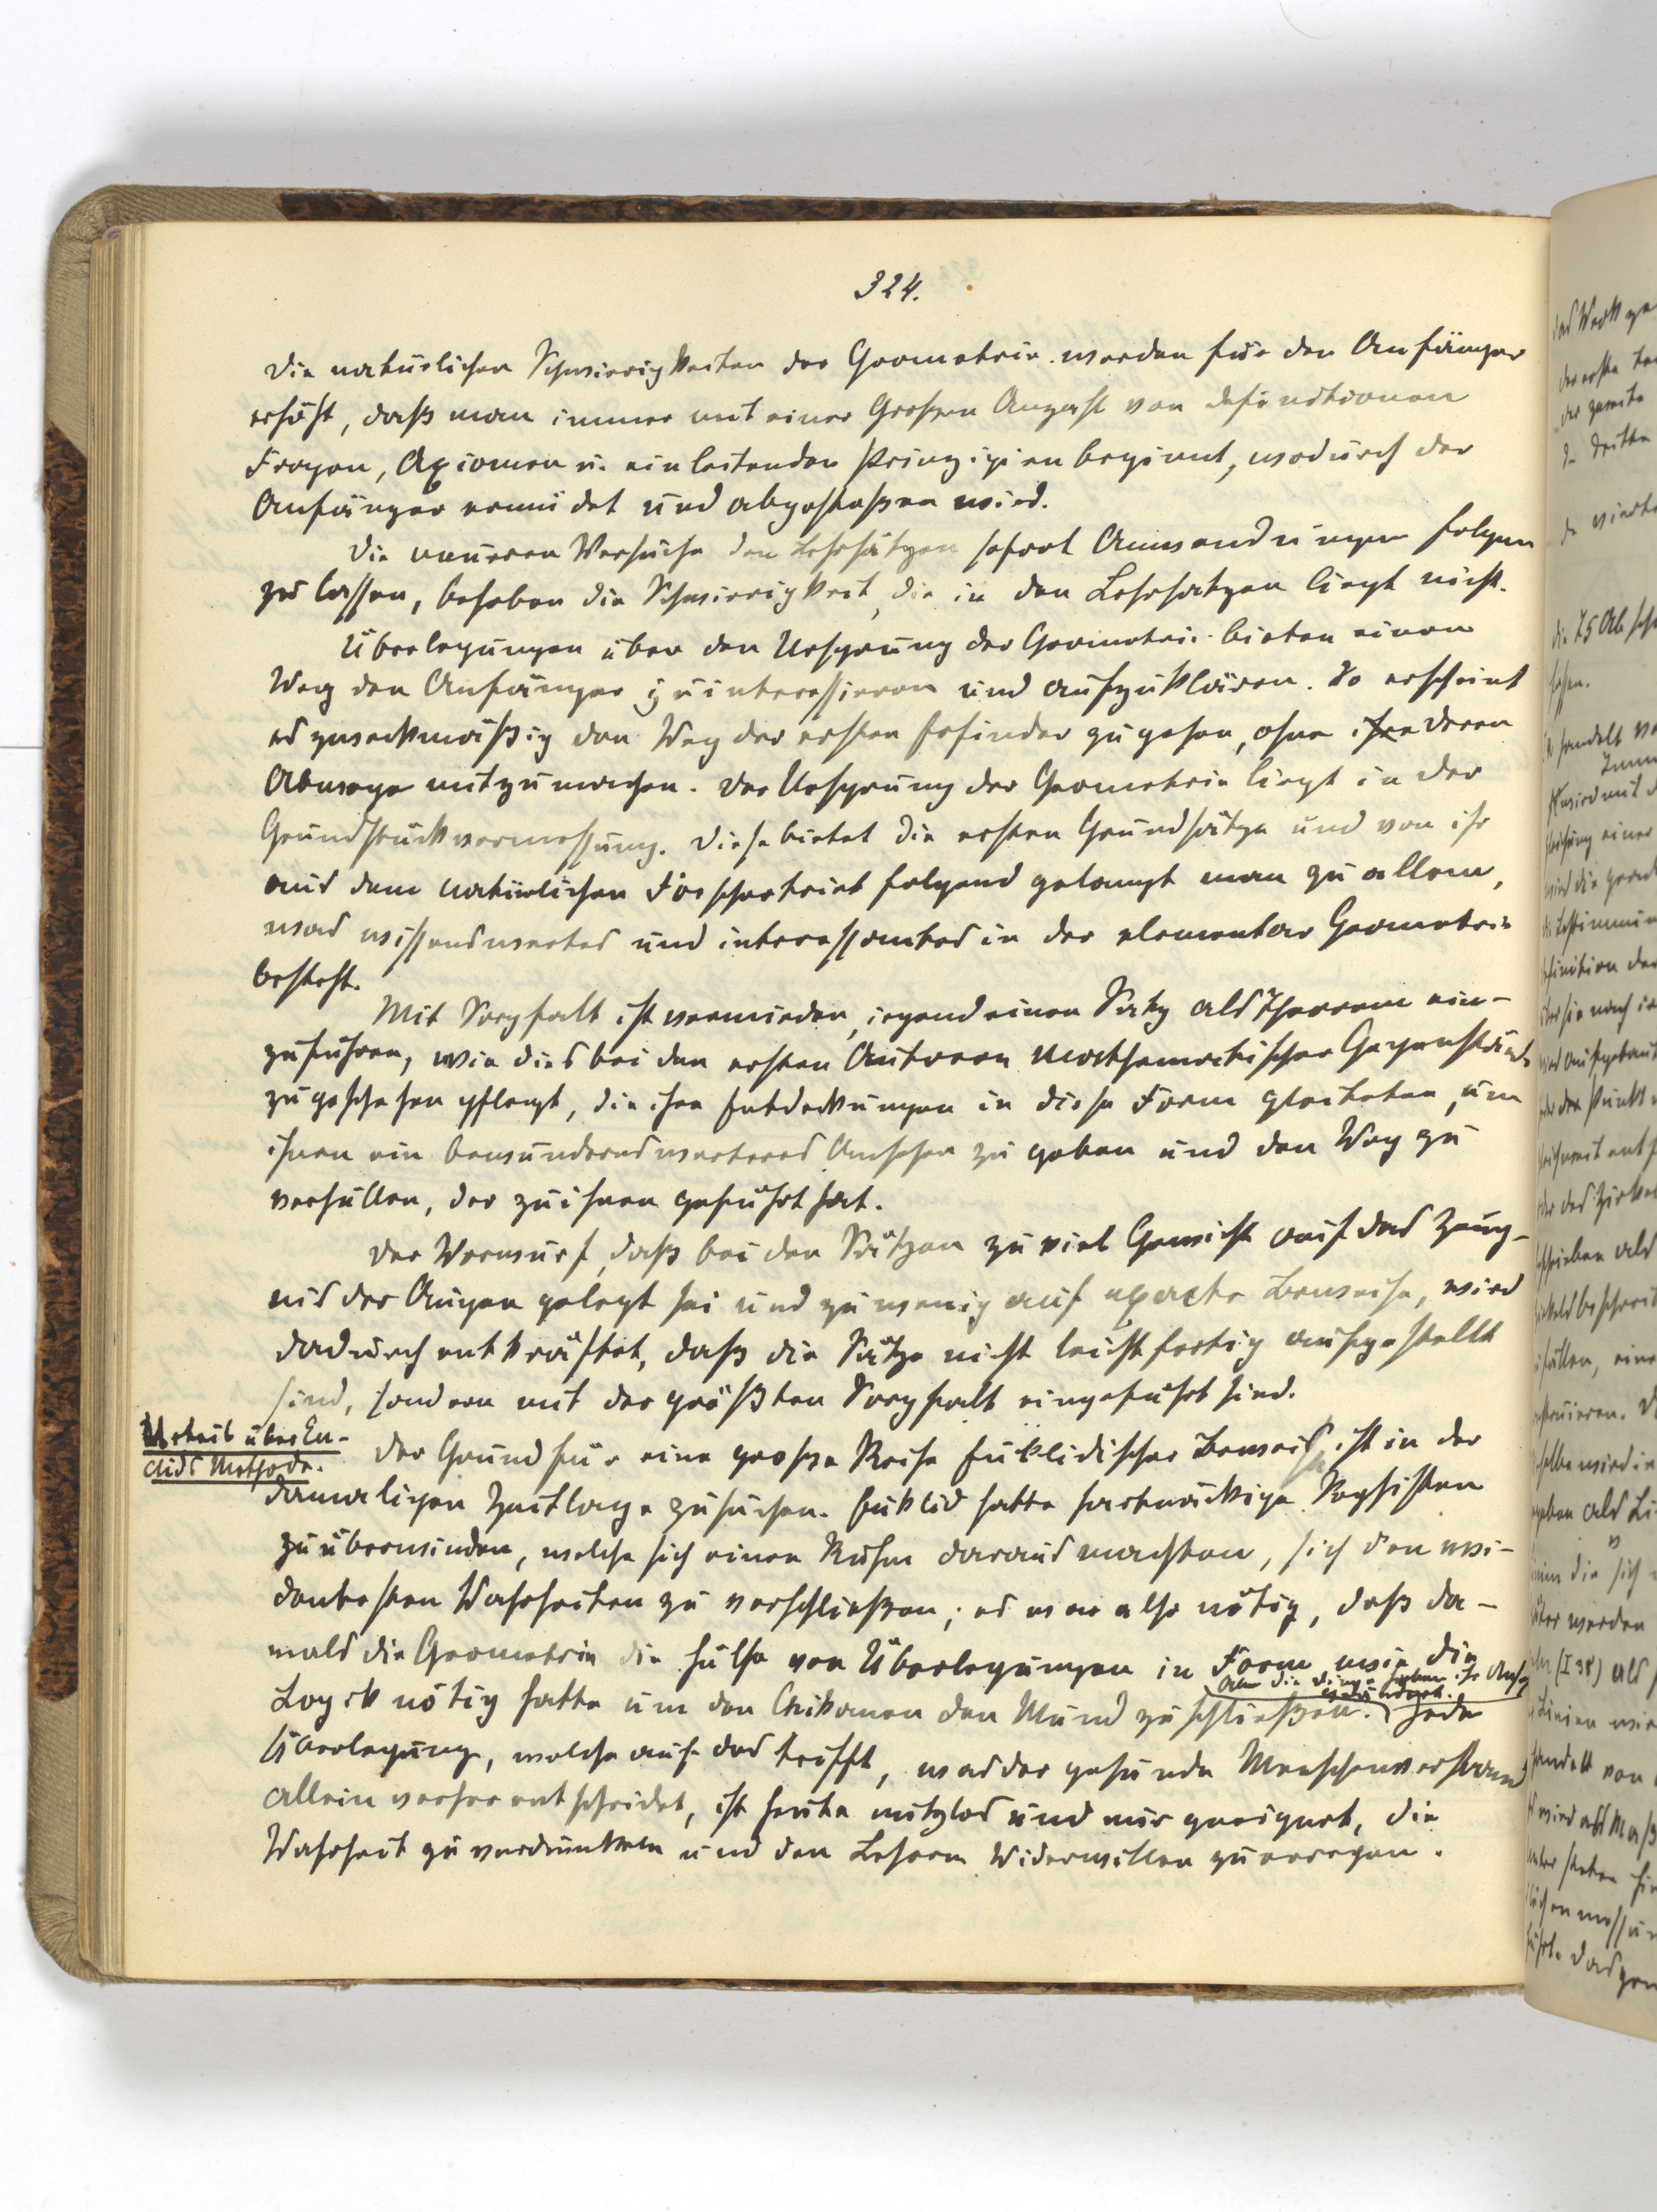 324.
Die natürlichen Schwierigkeiten der Geometrie werden für den Anfänger
erhöht, daß man immer mit einer Großen Anzahl von Definitionen
Fragen, Axiomen u. einleitenden Prinzipien beginnt, wodurch der
Anfänger ermüdet und abgestoßen wird.
Die neueren Versuche den Lehrsätzen sofort Anwendungen folgen
zu lassen, beheben die Schwierigkeit, die in den Lehrsätzen liegt nicht.
Überlegungen über den Ursprung der Geometrie bieten einen
Weg den Anfänger zu interessieren und aufzuklären. So erscheint
es zweckmäßig den Weg der ersten Erfinder zu gehen, ohne ihre deren
Abwege mitzumachen. Der Ursprung der Geometrie liegt in der
Grundstückvermessung. Diese bietet die ersten Grundsätze und von ihr
aus dem natürlichen Forschertrieb folgend gelangt man zu allem,
was wissenswertes und interessantes in der elementar Geometrie
besteht.
Mit Sorgfalt ist vermieden, irgend einen Satz als Theorem ein-
zuführen, wie dies bei den ersten Autoren mathematischer Gegenstände
zu geschehen pflegt, die ihre Entdeckungen in diese Form kleideten, um
ihnen ein bewundernswertes Ansehen zu geben und den Weg zu
verhüllen, der zu ihnen geführt hat.
Der Vorwurf, daß bei den Sätzen zu viel Gewicht auf das Zeug-
nis der Augen gelegt sei und zu wenig auf exacte Beweise, wird
dadurch entkräftet, daß die Sätze nicht leichtfertig aufgestellt
sind, sondern mit der größten Sorgfalt eingeführt sind.
Urteil über Eu-
clids Methode.
Der Grund für eine große Reihe Euklidischer Beweise, ist in der
damaligen Zeitlage zu suchen. Euklid hatte hartnäckige Sophisten
zu überwinden, welche sich einen Ruhm daraus machten, sich den evi-
dentesten Wahrheiten zu verschließen; es war also nötig, daß da-
mals die Geometrie die Hülfe von Überlegungen in Form wie die
Logik nötig hatte um den Chikanen den Mund zu schließen. Jede
Aber die Dinge haben ihr Ansehen
geändert.
Überlegung, welche auf das trifft, was der gesunde Menschenverstand
allein vorher entscheidet, ist heute nutzlos und nur geeignet, die
Wahrheit zu verdunkeln und den Lehrern Widerwillen zu erregen.